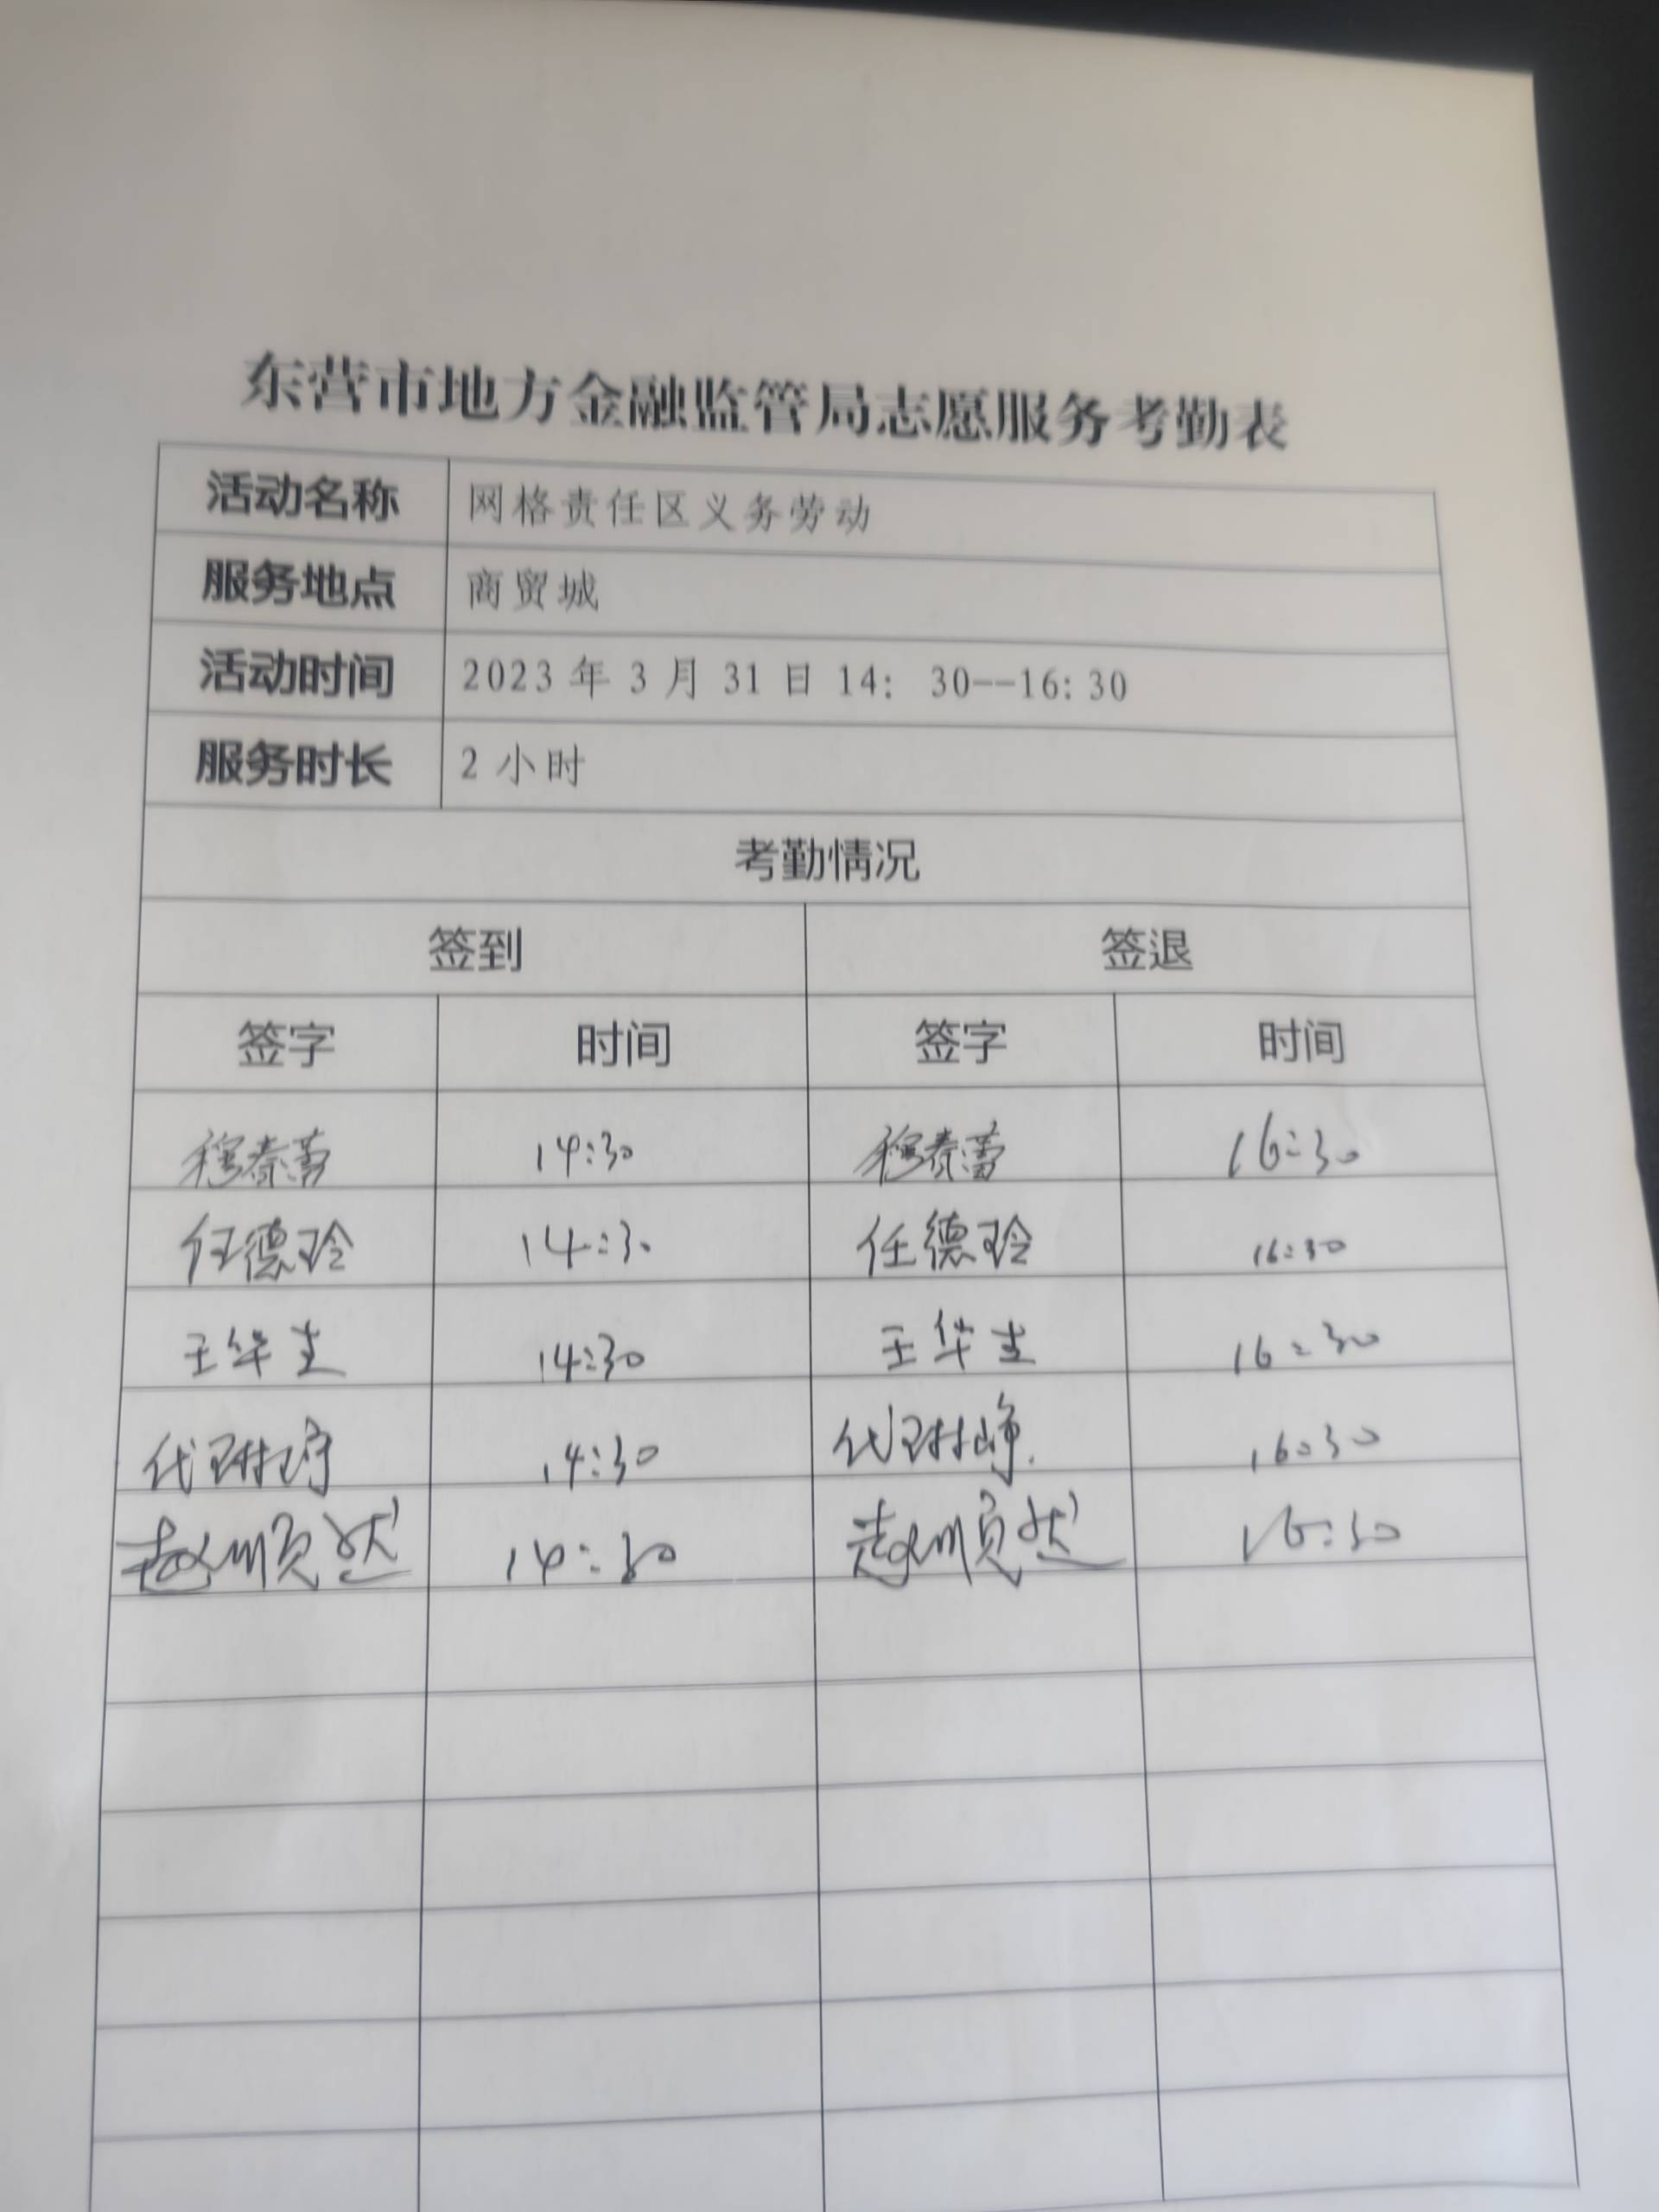 东营市地方金融监管局志愿服务考勤表
活动名称 网格责任区义务劳动
服务地点 商贸城
活动时间 2023年3月31日14: 30--16:30
服务时长 2小时
考勤情况
签到 签退
签字 时间 签字 时间
穆泰蕾 14:30 穆泰蕾 16:30
任德玲 14:30 任德玲 16:30
王华 14:30 王华 16:30
代琳 14:30 代琳 16:30
赵顺然 14:30 赵顺然 16:30